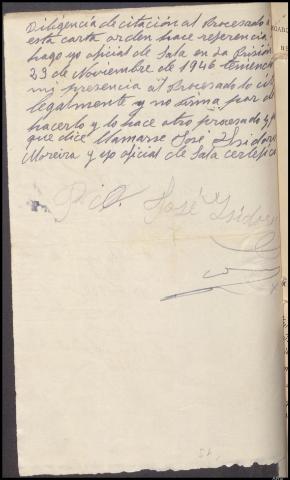 Diligencia de citación al Procesado a
esta carta orden hace referencia
hago yo oficial de Sala en la Prisión
23 de Noviembre de 1946 teniendo
mi presencia al Procesado le cité
legalmente y no firma por
hacerlo y lo hace otro procesado
que dice llamarse José Isidoro
Moreira y yo oficial de Sala certifico
P. O. José Isidoro